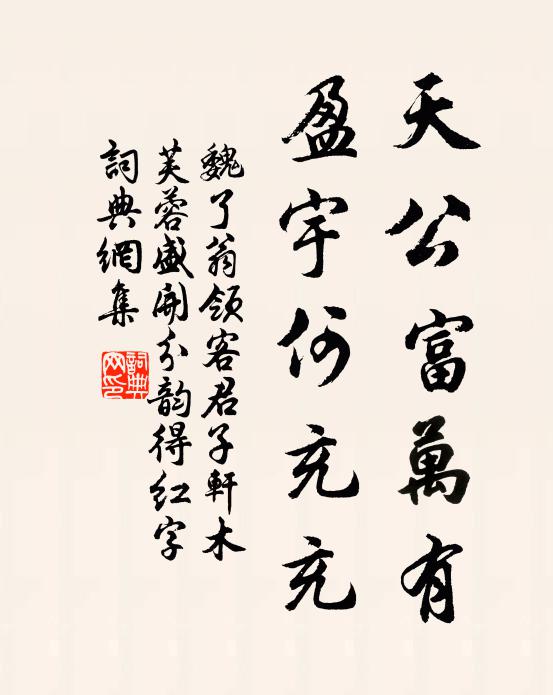 天公富萬有
盈宇何充充
魏了翁領客君子軒木
芙蓉盛開分韵得紅字
詞典網集
詞典
网印